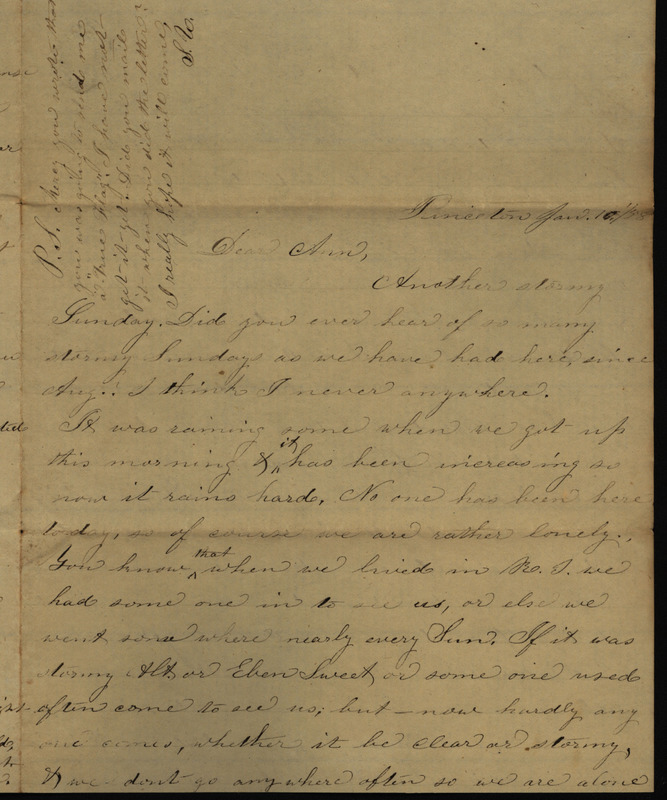 Princeton Jan. 10
Dear Ann,
Another stormy
Sunday. Did you ever hear of so many
stormy Sundays as we have had here, since
Aug.! I think I never anywhere.
It was raining some when we got up
this morning & it has been increasing so
now it rains hard. No one has been here
today, so of course we are rather lonely.
You know that when we lived in R. I. we
had some one in to see us, or else we
went some where nearly every Sun. If it was
stormy Alt or Eben Sweet or some one used
often come to see us; but now hardly any
one comes, whether it be clear or stormy,
& we dont go any where often so we are alone
P.S. you wrote that
you was going to send me
a I have not
got it yet. Did you mail
it when you did the letter?
I really hope it will come,